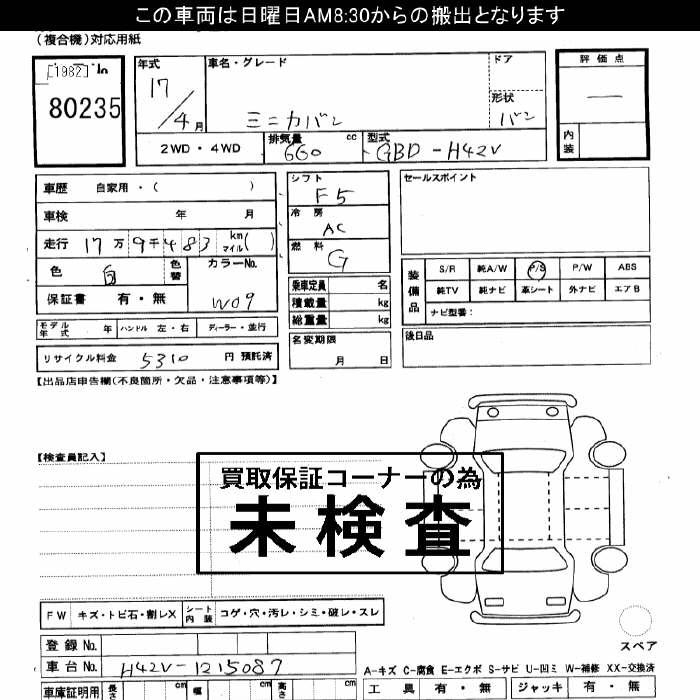 この車両は日曜日AM8:30からの搬出となります
（複合機）対応用紙
[1982] In
80235
年式 17/4月
車名・グレード
ミニカバン
ドア
形状
バン
評価点
―
内装
2WD・4WD
排気量 660 cc
型式 GBD-H42V
車歴 自家用・( )
車検 年 月
走行 17万9千483 km マイル( )
色 白 色替
カラーNo. W09
保証書 有・無
モデル年式 年 ハンドル 左・右 ディーラー・並行
リサイクル料金 5310 円 預託済
シフト F5
冷房 AC
燃料 G
乗車定員 名
積載量 kg
総重量 kg
名変期限
月 日
セールスポイント
装備品
S/R 純A/W P/S P/W ABS
純TV 純ナビ 革シート 外ナビ エアB
ナビ型番：
後日品
【出品店申告欄(不良箇所・欠品・注意事項等)】
【検査員記入】
買取保証コーナーの為
未検査
FW キズ・トビ石・割レX
シート内装 コゲ・穴・汚レ・シミ・破レ・スレ
登録No.
車台No. H42V-1215087
車庫証明用 長さ cm 幅 cm 高さ cm
スペア
A-キズ C-腐食 E-エクボ S-サビ U-凹ミ W-補修 XX-交換済
工具 有・無 ジャッキ 有・無